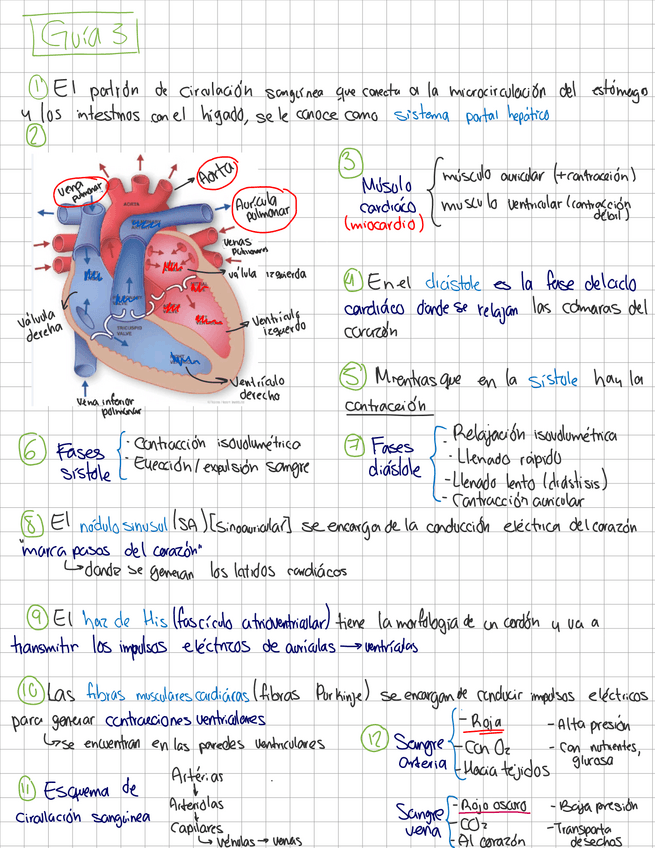 Guía 3
① El patrón de circulación sanguínea que conecta a la microcirculación del estómago
y los intestinos con el hígado, se le conoce como sistema portal hepático
②
Vena pulmonar
Aorta
Aurícula pulmonar
venas Pulmonares
válula izquierda
Ventriculo izquierdo
Ventriculo derecho
Válvula derecha
Vena inferior pulmonar
AORTA
TRICUSPID VALVE
③ Músulo cardiáco (miocardio)
músculo auricular (+contracción)
musculo ventricular (contracción débil)
④ En el diástole es la fase del ciclo
cardiáco donde se relajan las cámaras del
corazón
⑤ Mientras que en la sístole hay la
contracción
⑥ Fases sístole
- Contracción isovolumétrica
- Eyección / expulsión sangre
⑦ Fases diástole
- Relajación isovolumétrica
- Llenado rápido
- Llenado lento (diástisis)
- Contracción auricular
⑧ El nódulo sinusul (SA) [sinoauricular] se encarga de la conducción eléctrica del corazón
"marca pasos del corazón"
↳ donde se generan los latidos cardiácos
⑨ El haz de His (fascículo atrioventricular) tiene la morfología de un cordón y va a
transmitir los impulsos eléctricos de aurículas → ventrículas
⑩ Las fibras musculares cardiácas (fibras Purkinje) se encargan de conducir impulsos eléctricos
para generar contracciones ventriculares
↳ se encuentran en las paredes ventriculares
⑪ Esquema de
Circulación sanguínea
Artérias
↓
Arteriolas
↓
Capilares
↳ vénulas → venas
⑫ Sangre arteria
- Roja
- Con O₂
- Hacia tejidos
- Alta presión
- Con nutrientes, glucosa
Sangre vena
- Rojo oscuro
- CO₂
- Al corazón
- Baja presión
- Transporta desechos